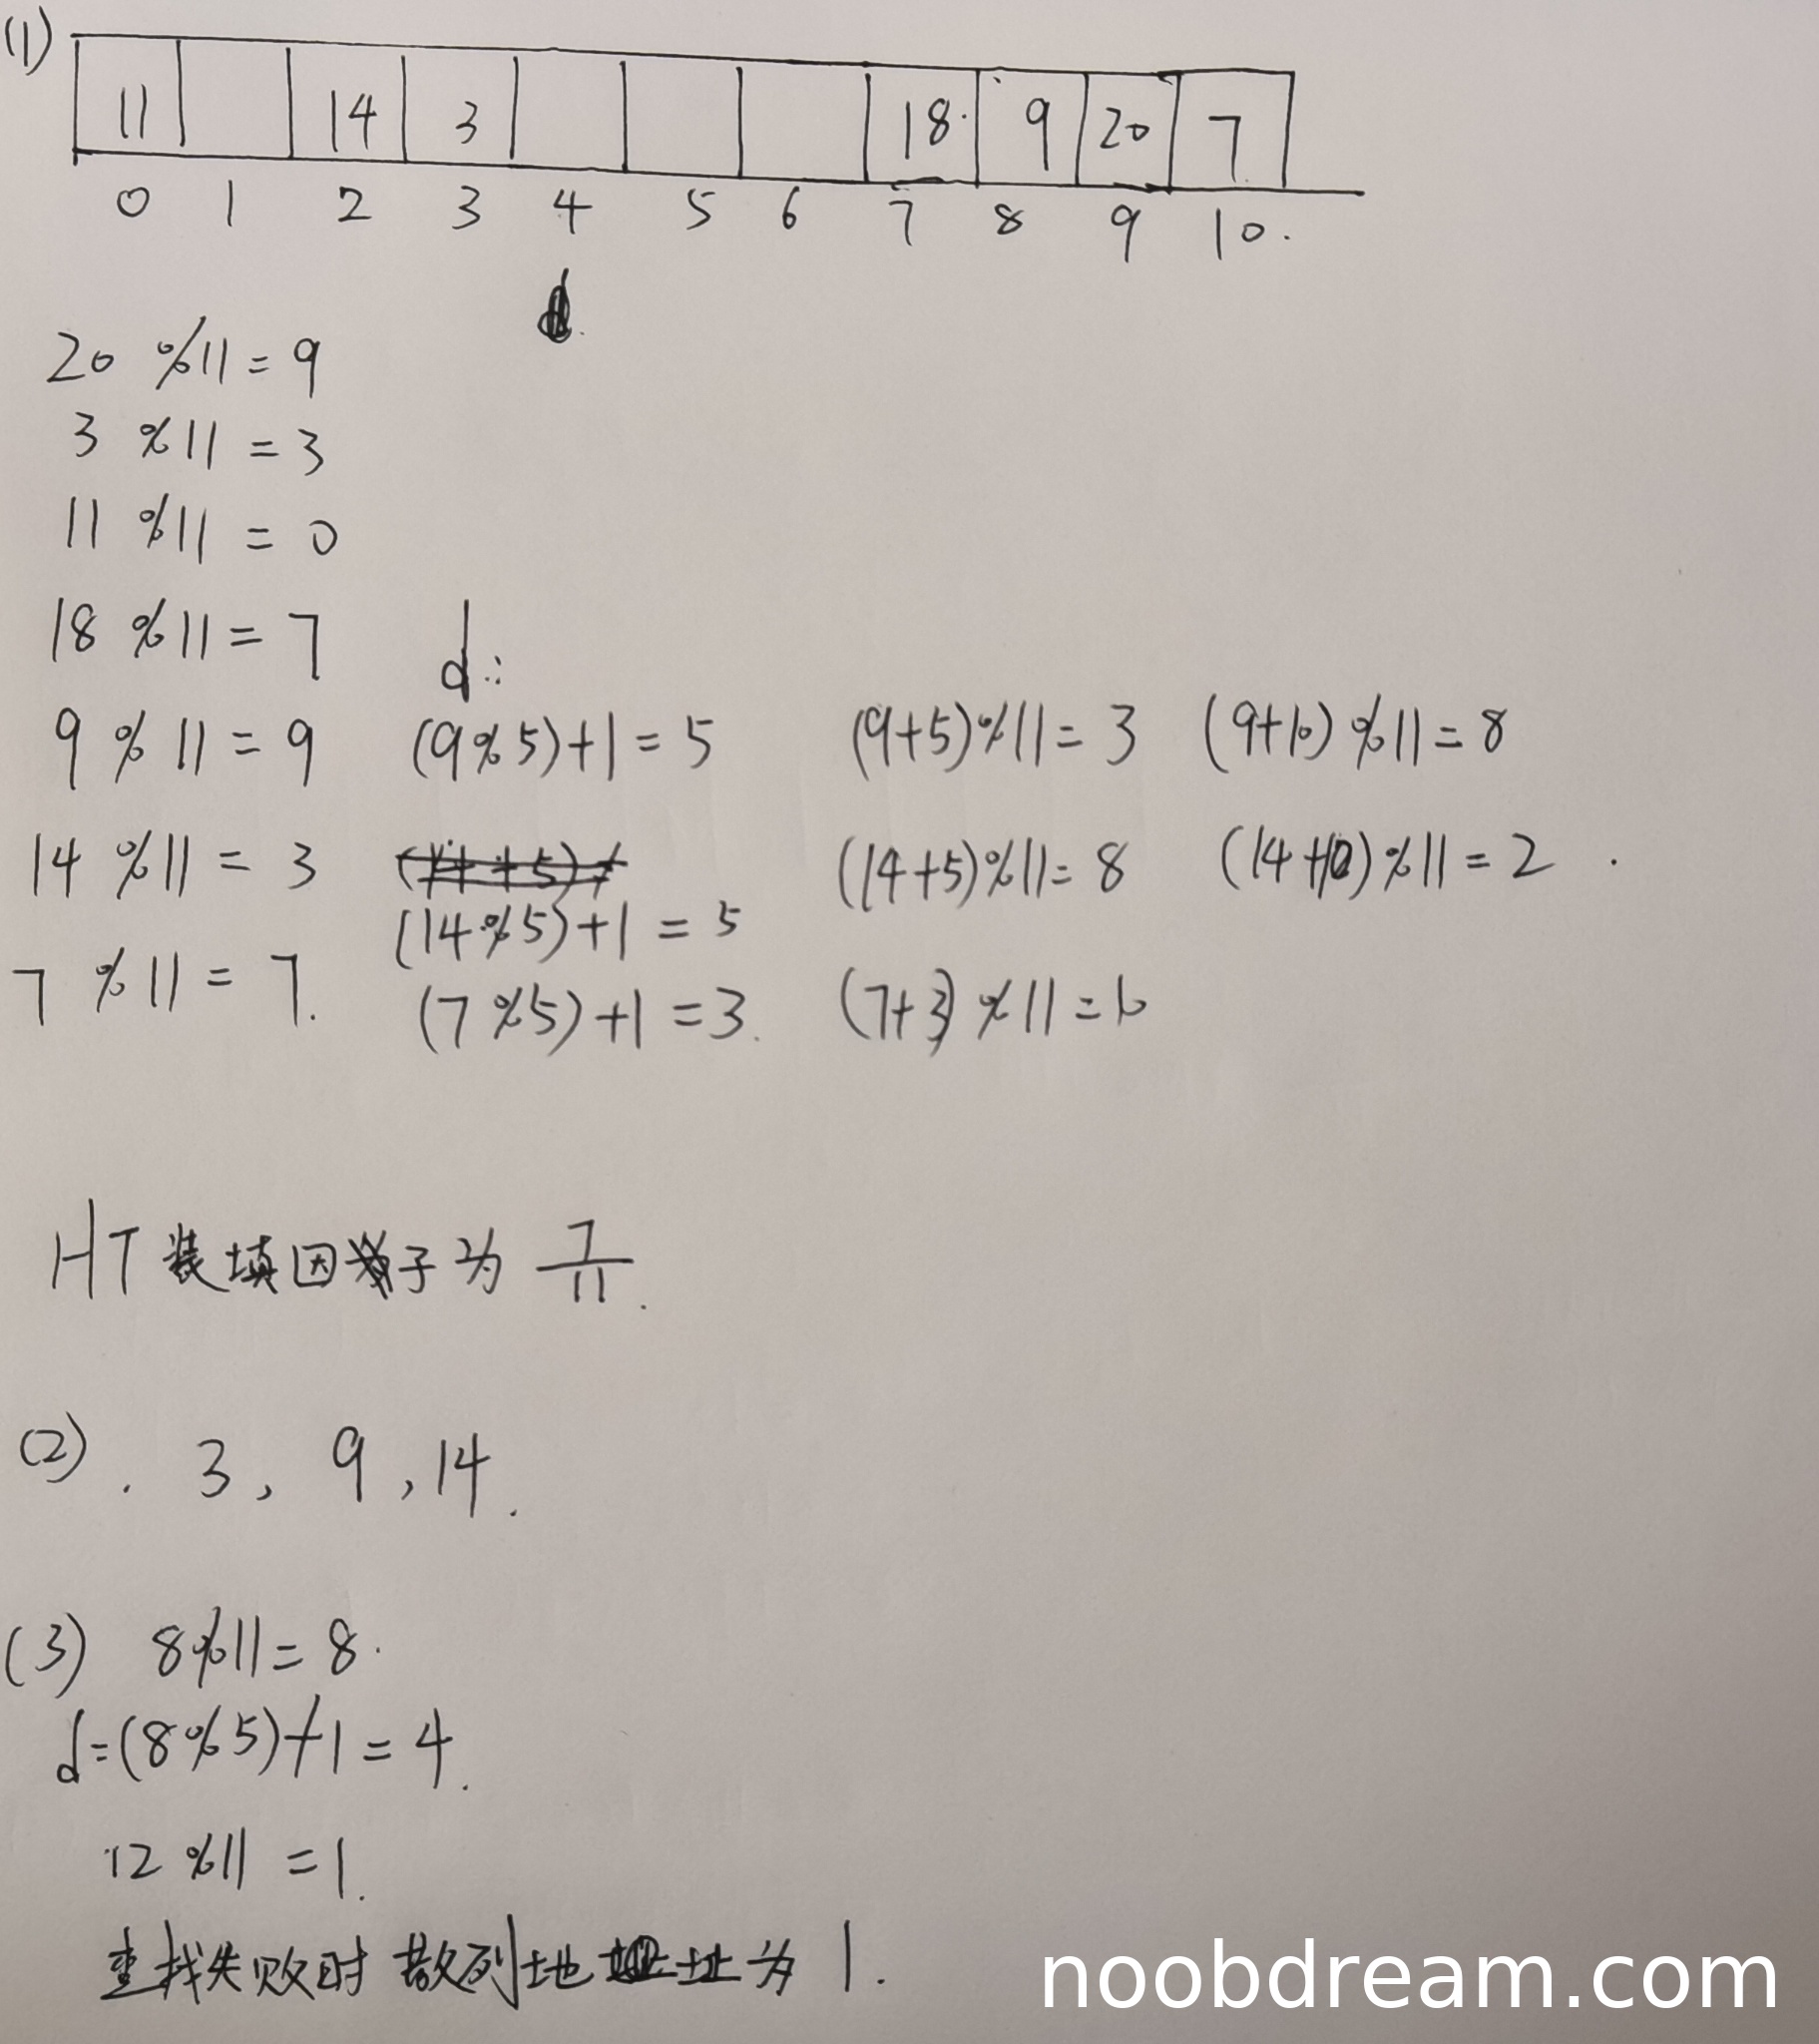 (1)
11 14 3 18 9 20 7
0 1 2 3 4 5 6 7 8 9 10.
20 %11 = 9
3 %11 = 3
11 %11 = 0
18 %11 = 7
d:
9 % 11 = 9 (9%5)+1 = 5 (9+5)%11 = 3 (9+10)%11 = 8
14 %11 = 3 (14+5)%11 = 8 (14+10)%11 = 2 .
(14%5)+1 = 5
7 %11 = 7. (7%5)+1 = 3. (7+3)%11 = 10
HT装填因子为 7/11.
(2). 3, 9, 14.
(3) 8%11 = 8.
d=(8%5)+1 = 4.
12 %11 = 1.
查找失败时散列地址为 1.
noobdream.com